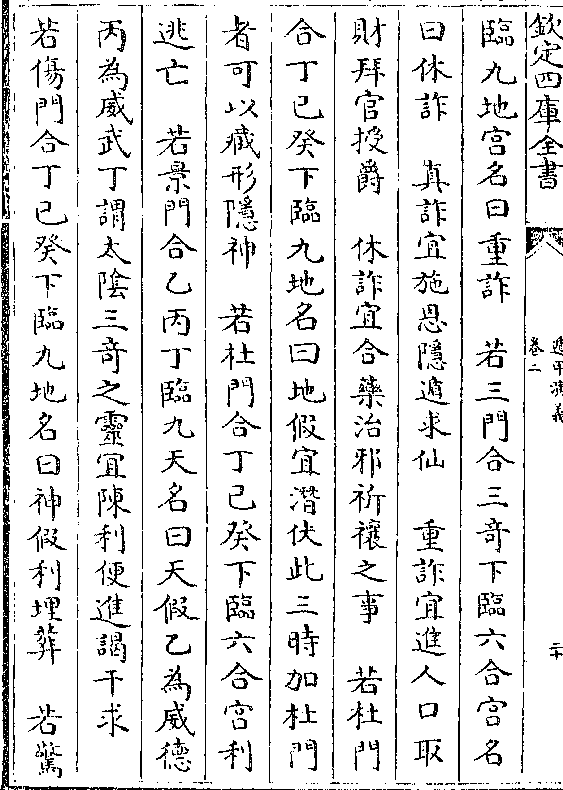 欽定四庫全書
遁甲演義
卷二
二十
臨九地宮名曰重詐　若三門合三奇下臨六合宮名
曰休詐　真詐宜施恩隱遁求仙　重詐宜進人口取
財拜官授爵　休詐宜合藥治邪祈禳之事　若杜門
合丁己癸下臨九地名曰地假宜潛伏此三時加杜門
者可以藏形隱神　若杜門合丁己癸下臨六合宮利
逃亡　若景門合乙丙丁臨九天名曰天假乙為威德
丙為威武丁謂太陰三奇之靈宜陳利便進謁干求
若傷門合丁己癸下臨九地名曰神假利埋葬　若驚